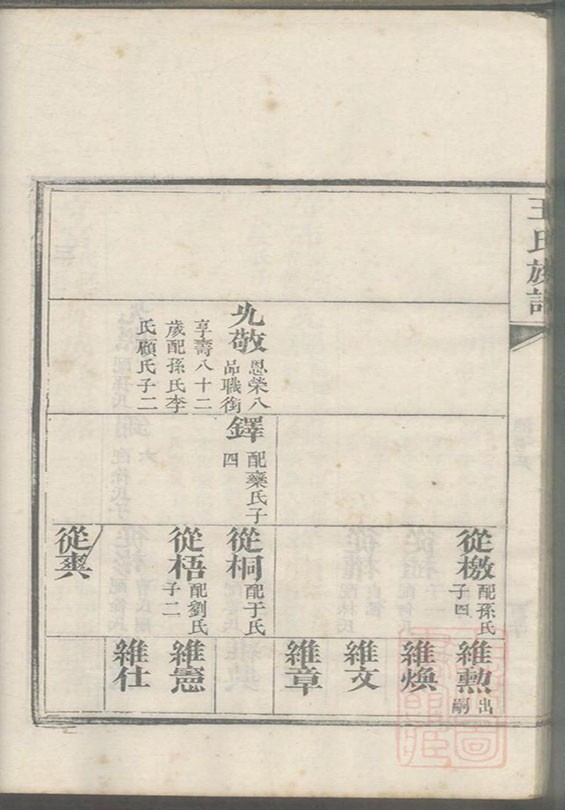 王氏族譜
允敬
恩榮八
品職銜
享壽八十二
歲配孫氏李
氏顧氏子二
鐸
配藥氏子
四
從檄
配孫氏
子四
從桐
配于氏
從梧
配劉氏
子二
從爽
維勲
出
嗣
維煥
維文
維章
維憲
維仕